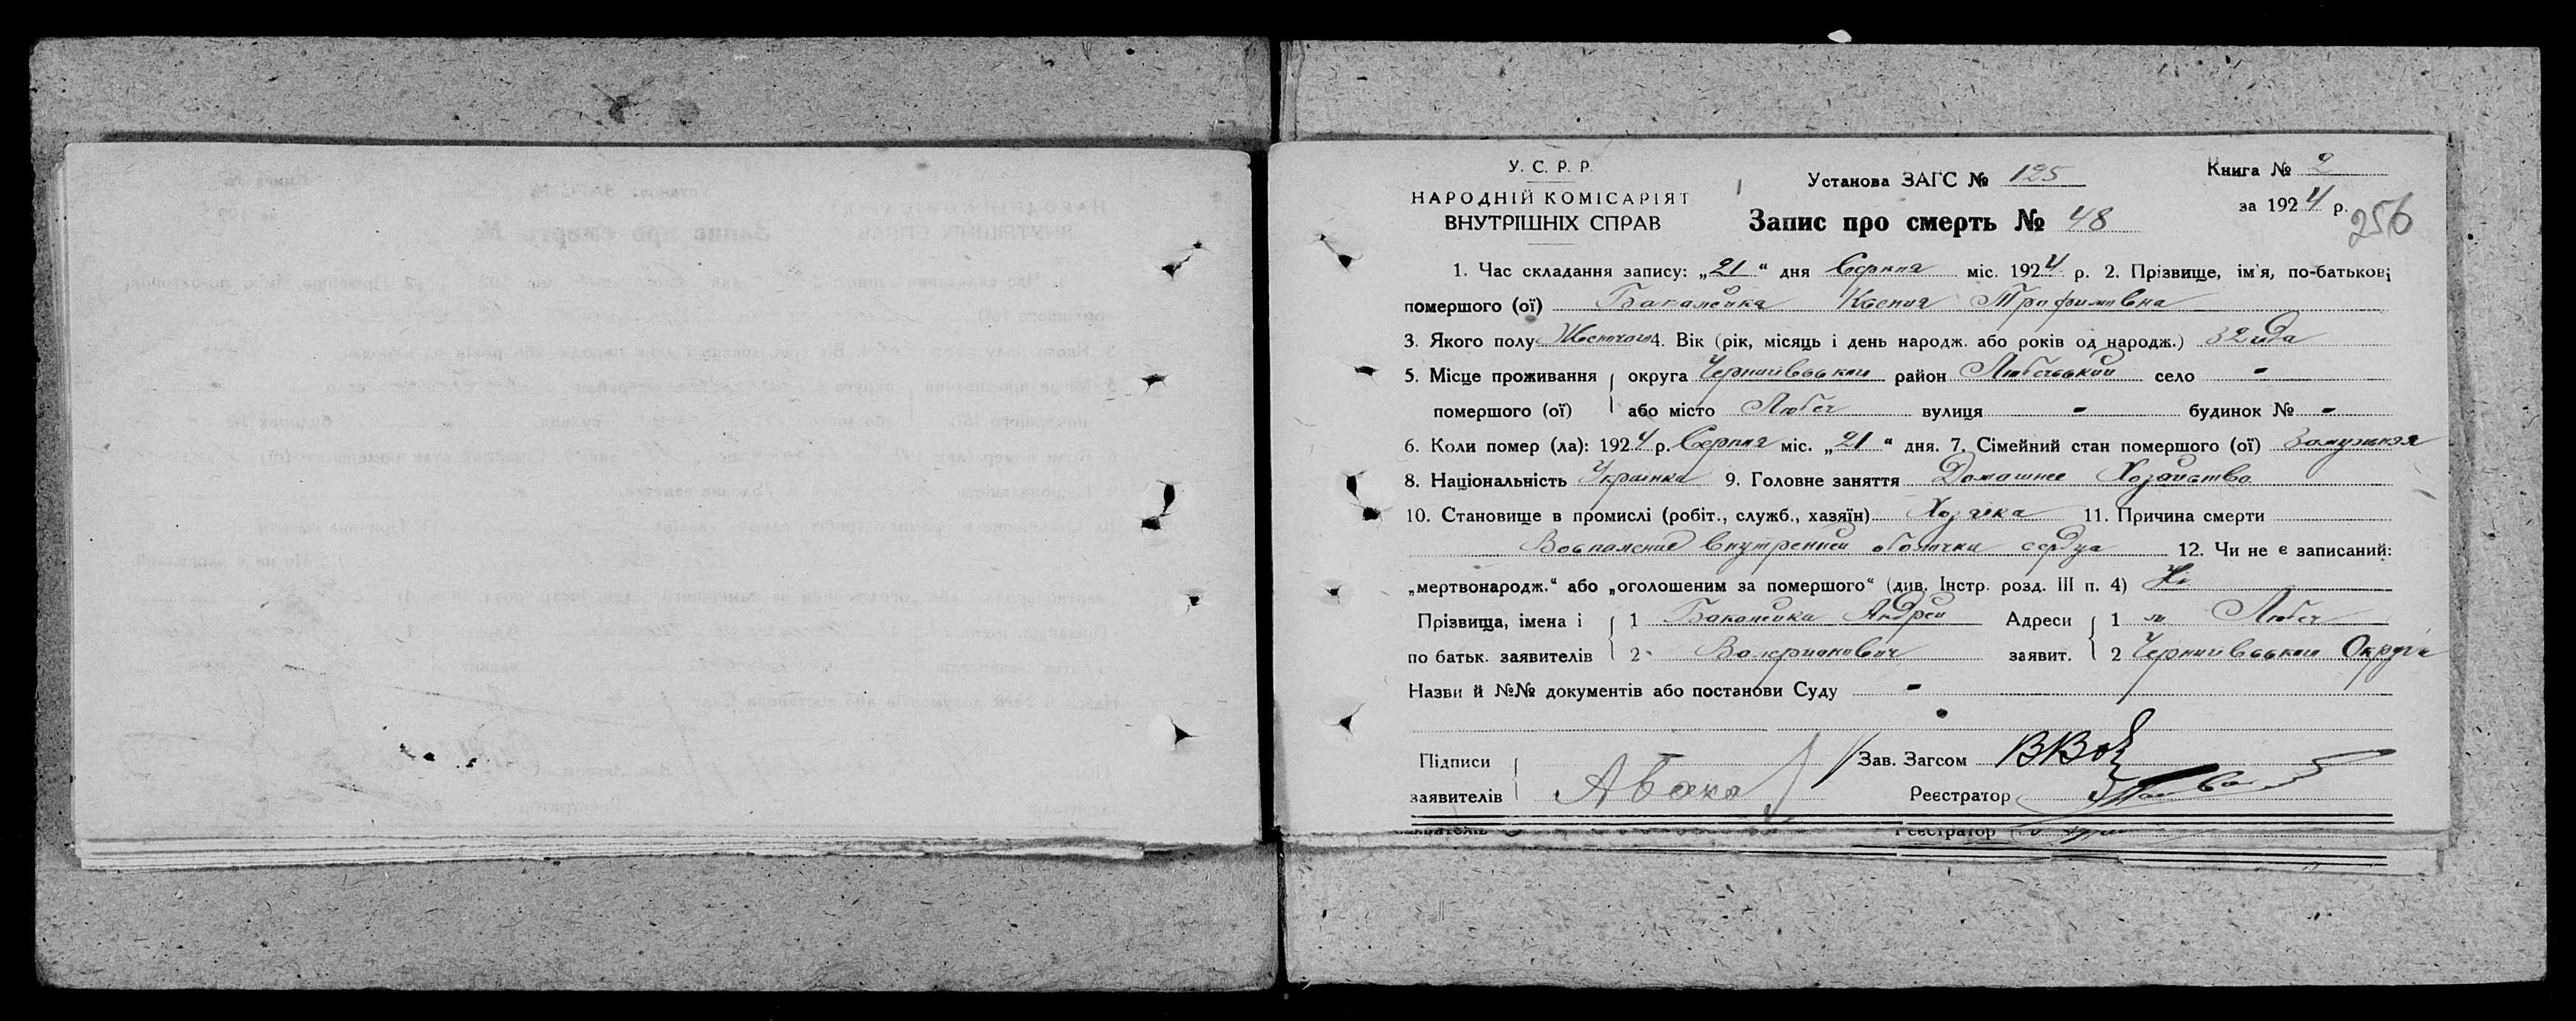 У. С. Р. Р.
НАРОДНІЙ КОМІСАРІЯТ
ВНУТРІШНІХ СПРАВ
Установа ЗАГС № 125
Запис про смерть № 48
Книга № 2
за 1924 р.
256
1. Час складання запису: „21“ дня Серпня міс. 1924 р. 2. Прізвище, ім'я, по-батькові
помершого (ої) Бакалейка Ксения Трофимовна
3. Якого полу 4. Вік (рік, місяць і день народж. або років од народж.) 32
5. Місце проживання округа Чернигівськои район Любечський село -
помершого (ої) або місто Любеч вулиця - будинок № -
6. Коли помер (ла): 1924 р. Серпня міс. „21“ дня. 7. Сімейний стан помершого (ої) Замужняя
8. Національність Українка 9. Головне заняття Домашнее Хозайство
10. Становище в промислі (робіт., служб., хазяїн) Хозяйка 11. Причина смерти
Воспаление внутренней оболочки сердца 12. Чи не є записаний:
„мертвонародж.“ або „оголошеним за помершого“ (див. Інстр. розд. III п. 4) Ні
Прізвища, імена і 1 Бакалейка Андрей Адреси 1 м Любеч
по батьк. заявителів 2 Валерианович заявит. 2 Чернигівськои Округи
Назви й №№ документів або постанови Суду -
Підписи Зав. Загсом
заявителів Реєстратор
Реєстратор